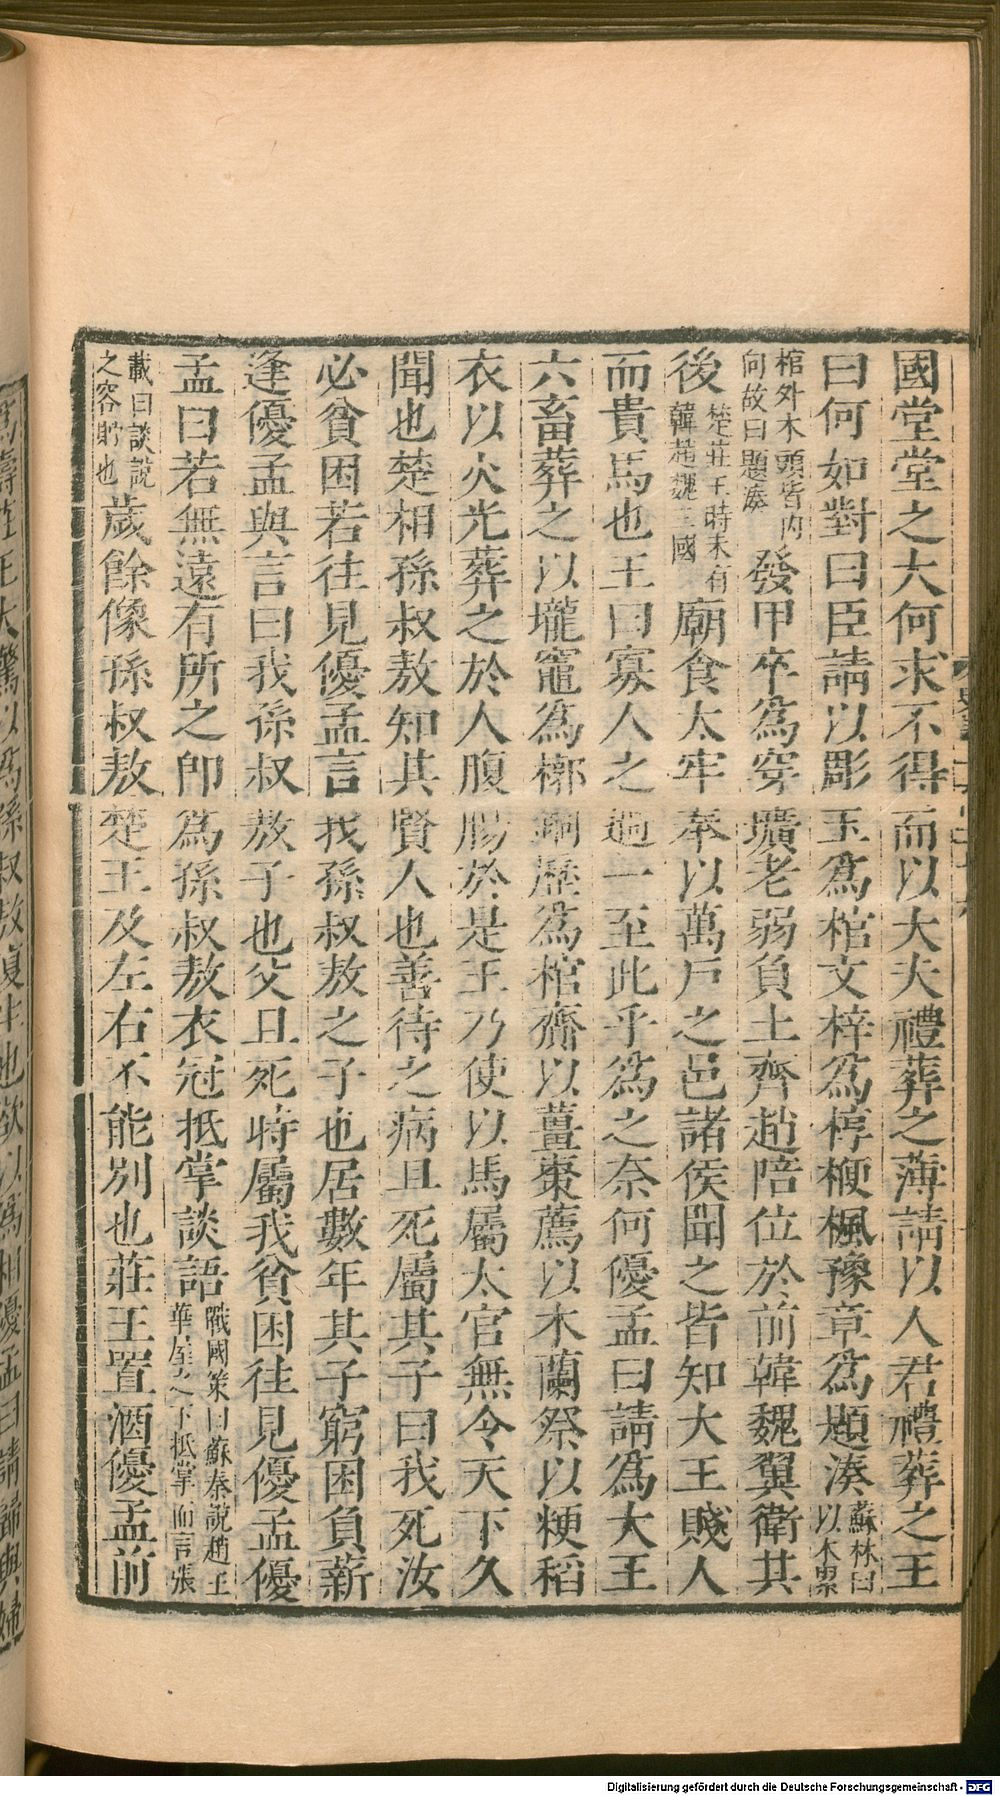 國堂堂之大何求不得而以大夫禮葬之薄請以人君禮葬之王
曰何如對曰臣請以彫玉為棺文梓為椁楩楓豫章為題湊蘇林曰以木累
棺外木頭皆內向故曰題湊發甲卒為穿壙老弱負土齊趙陪位於前韓魏翼衛其
後楚莊王時未有韓趙魏三國廟食太牢奉以萬戶之邑諸侯聞之皆知大王賤人
而貴馬也王曰寡人之過一至此乎為之奈何優孟曰請為大王
六畜葬之以壠竈為槨銅歷為棺齊以薑棗薦以木蘭祭以粳稻
衣以火光葬之於人腹腸於是王乃使以馬屬太官無令天下久
聞也楚相孫叔敖知其賢人也善待之病且死屬其子曰我死汝
必貧困若往見優孟言我孫叔敖之子也居數年其子窮困負薪
逢優孟與言曰我孫叔敖子也父且死時屬我貧困往見優孟優
孟曰若無遠有所之卽為孫叔敖衣冠抵掌談語戰國策曰蘇秦說趙王華屋之下抵掌而言張
載曰談說之容貯也歲餘像孫叔敖楚王及左右不能別也莊王置酒優孟前
大驚以為孫叔敖復生也欲以為相優孟曰請歸與婦
Digitalisierung gefördert durch die Deutsche Forschungsgemeinschaft - DFG